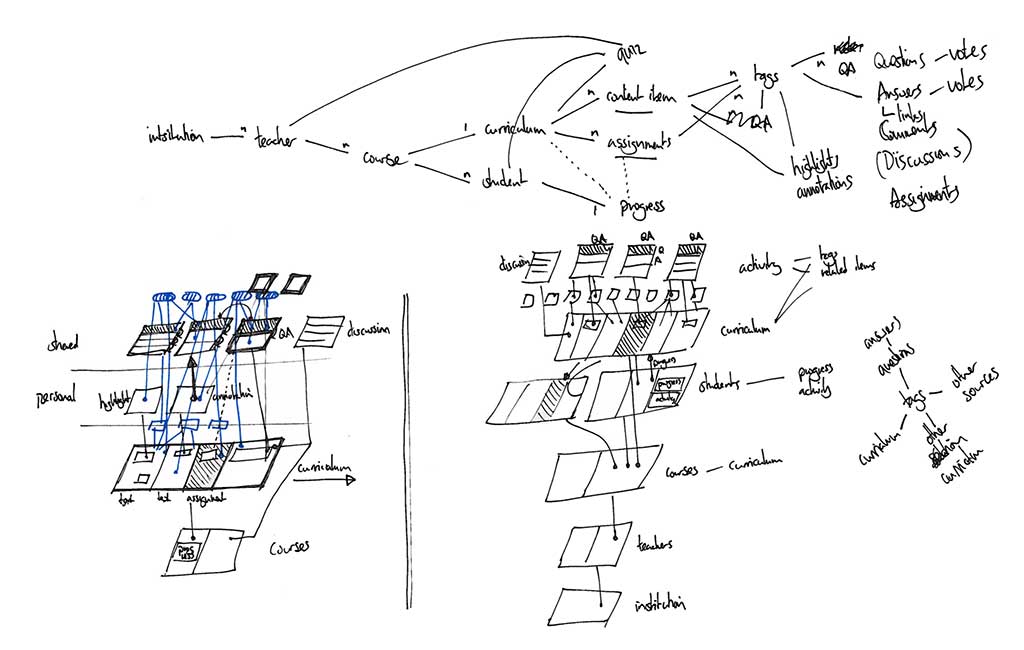 quiz
QA
Questions - votes
n
n
n
tags
content item
n
n
Answers - votes
links
Comments
intsitution
n
teacher
1
curriculum
n
QA
n
course
n
assignments
(Discussions)
highlights
annotations
n
student
Assignments
1
progress
QA
QA
QA
discussion
Q
A
activity
tags
related items
shared
QA
discussion
curriculum
answers
questions
personal
highlight
progress
progress
activity
students
progress
activity
tags
other
sources
curriculum
other
curriculum
curriculum
courses - curriculum
text
text
assignment
courses
teachers
institution